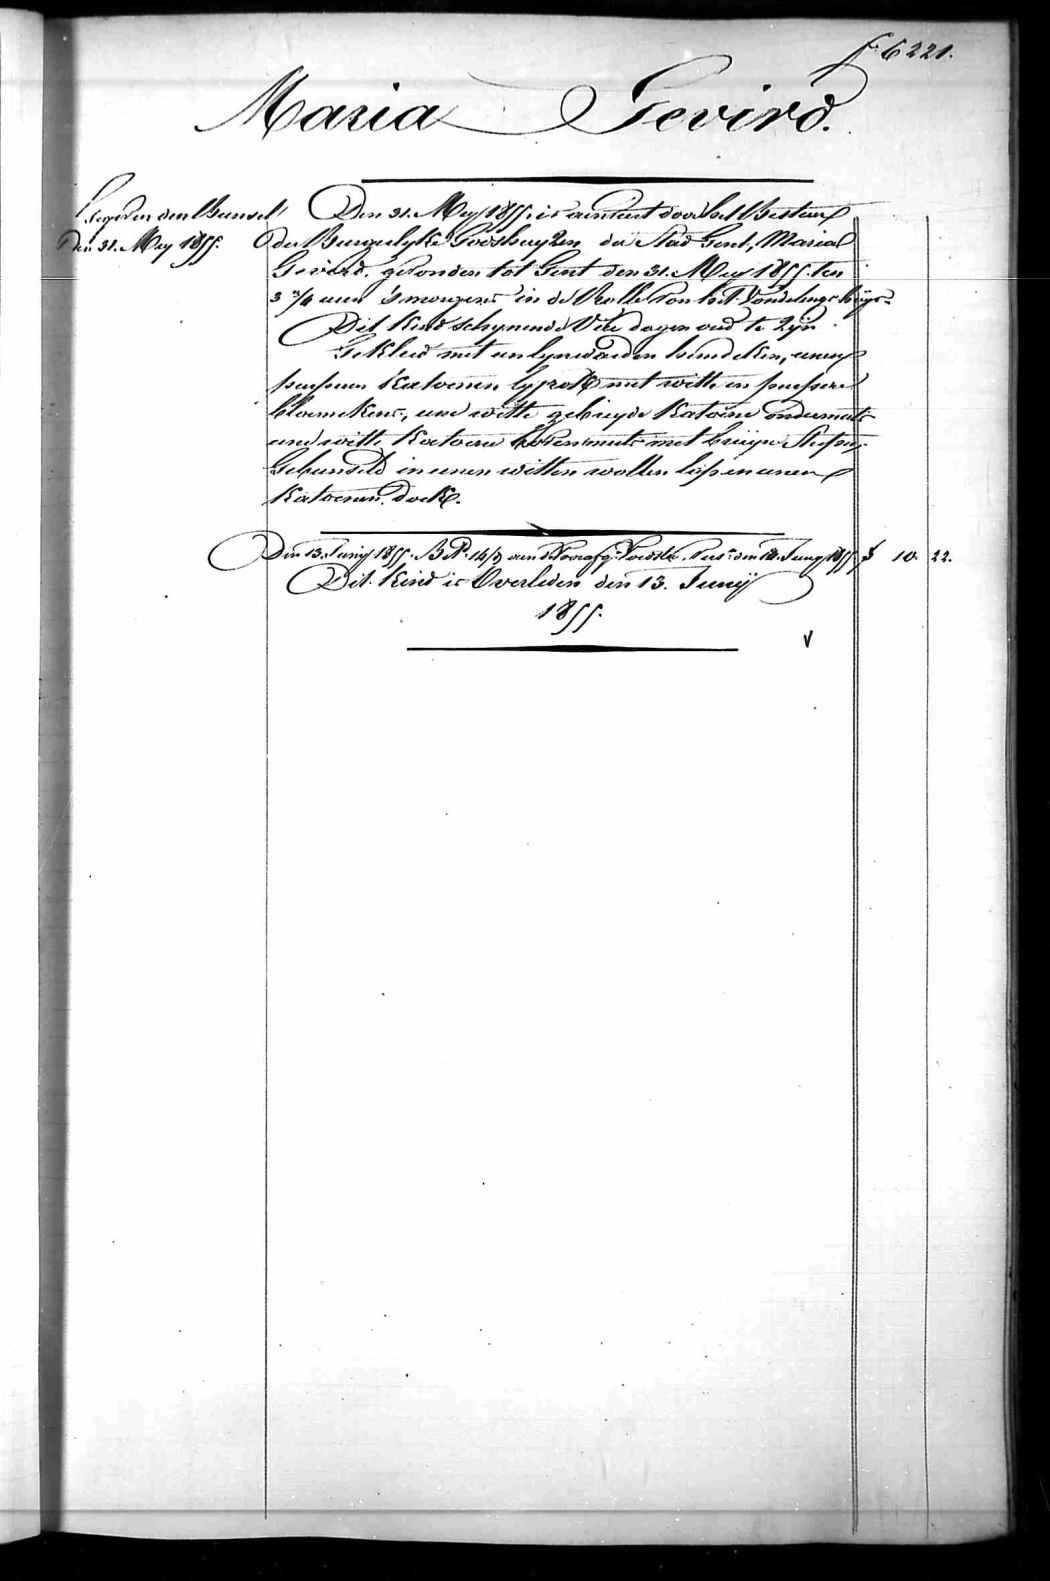 fº 6221.
Maria Gevird.
den Bussel
Den 31. Mey 1855.
Den 31. Mey 1855. is aenveert door het Bestuer
der Burgerlyke Godshuyzen der Stad Gent, Maria
Gevird, gevonden tot Gent den 31. Mey 1855. ten
3 3/4 uren 's morgens in de Rolle van het Vondelings huys.
Dit Kind schynende Vier dagen oud te zyn
Gekleed met een lynwaeden hemdeken, eenen
purpuren Katoenen lyfrok met witte en purpere
bloemekens, eene witte gebruyde Katoene ondermuts
eene witte Katoene bovenmuts met bruyn
Gebunseld in eenen witten wollen en eenen
Katoenen doek.
Den 13. Juny 1855. B Nº 14/3 aen de Voorafg. Voedster den 12. Juny 1855 10. 22.
Dit Kind is Overleden den 13. Juny
1855.